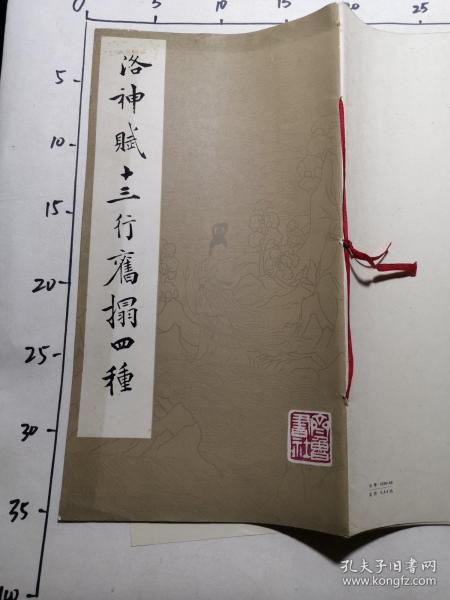 0 5 10 15 20 25
5
10
15
20
25
30
35
40
洛神賦十三行舊搨四種
齊魯書社
孔夫子旧书网
www.kongfz.com